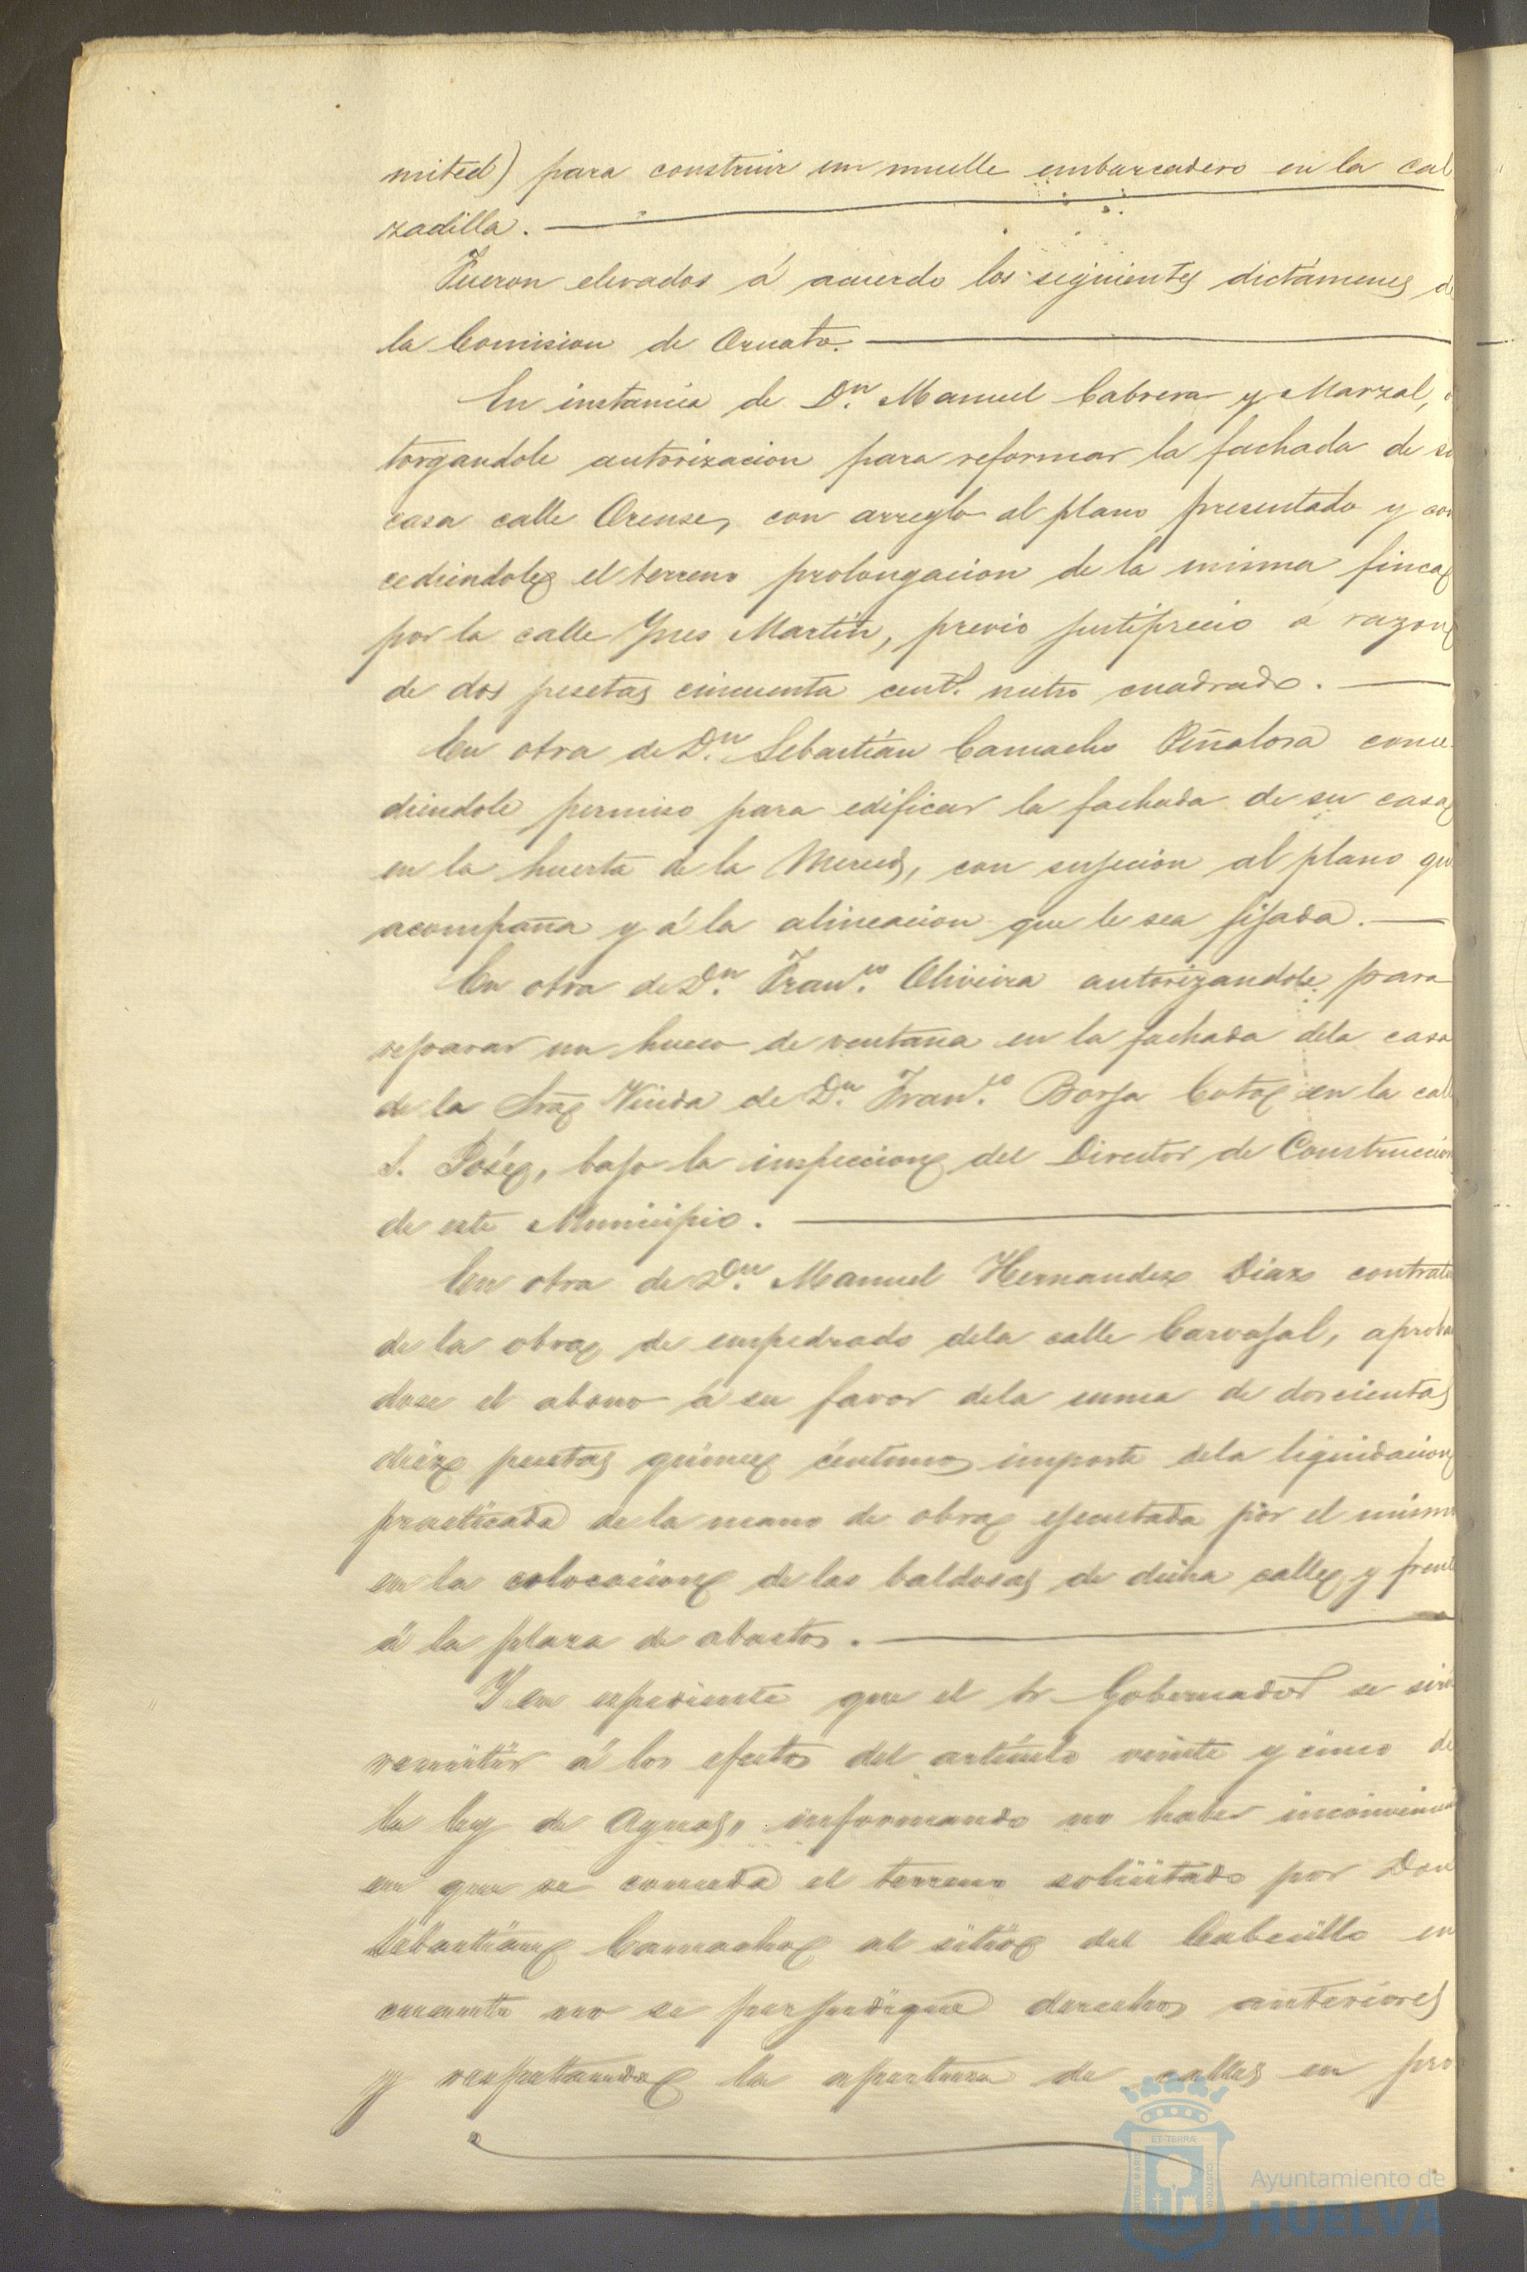 mited) para construir un muelle embarcadero en la cal
zadilla.
Fueron elevados á acuerdo los siguientes dictámenes d
la Comision de Ornato.
En instancia de Dn. Manuel Cabrera y Marzal, o
torgandole autorizacion para reformar la fachada de su
casa calle Orense, con arreglo al plano presentado y con
cediendole el terreno prolongacion de la misma finca
por la calle Ynes Martin, previo justiprecio á razon
de dos pesetas cincuenta cents. metro cuadrado.
En otra de Dn. Sebastián Camacho Peñalosa conce
diendole permiso para edificar la fachada de su casa
en la huerta de la Merced, con sujecion al plano que
acompaña y á la alineacion que le sea fijada.
En otra de Dn. Franco. Oliveira autorizandole para
reparar un hueco de ventana en la fachada dela casa
de la Sra Viuda de Dn. Franco. Borja Coto en la call
S. José, bajo la inspeccion del Director de Construccion
de este Municipio.
En otra de Dn. Manuel Hernandez Diaz contrata
de la obra de empedrado dela calle Carvajal, aproban
dose el abono á su favor dela suma de doscientas
diez pesetas quince céntimos importe dela liquidacion
practicada de la mano de obra ejecutada por el mismo
en la colocacion de las baldosas de dicha calle y frente
á la plaza de abastos.
Y en espediente que el Sr Gobernador se sirve
remitir á los efectos del artículo veinte y cinco de
la ley de Aguas, informando no haber inconvenien
en que se conceda el terreno solicitado por Don
Sebastian Camacho al sitio del Cabecillo en
cuanto no se perjudique derechos anteriores
y respetando la apertura de calles en pro
ET TERRÆ
CUSTODIA
Ayuntamiento de
HUELVA